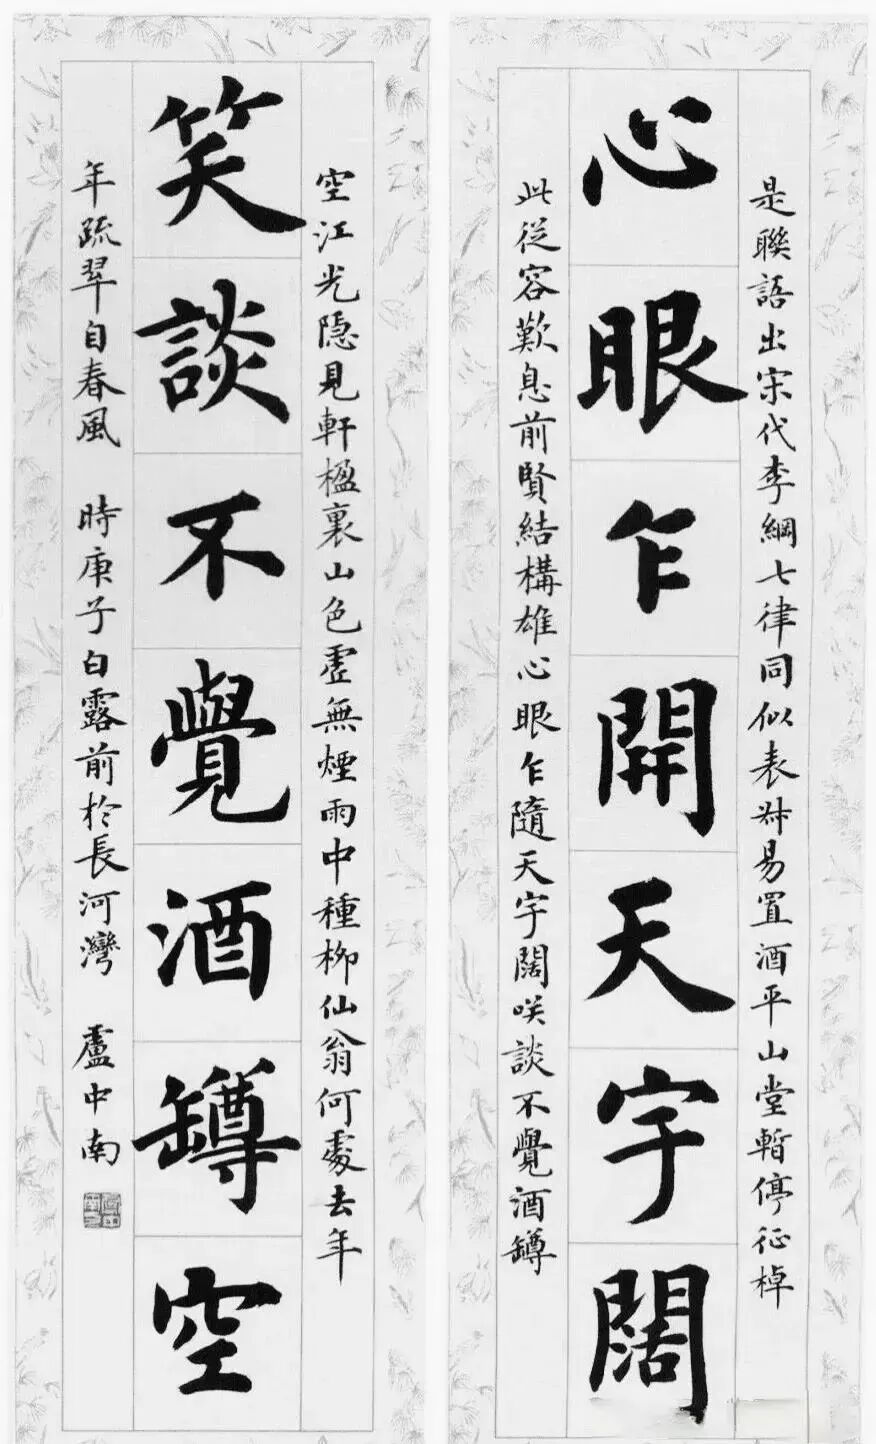 是聯語出宋代李綱七律同似表叔易置酒平山堂暫停征棹
心眼乍開天宇闊
此從容歎息前賢結構雄心眼乍隨天宇闊咲談不覺酒罇
空江光隱見軒楹裏山色虛無煙雨中種柳仙翁何處去年
笑談不覺酒罇空
年疏翠自春風 時庚子白露前於長河灣 盧中南